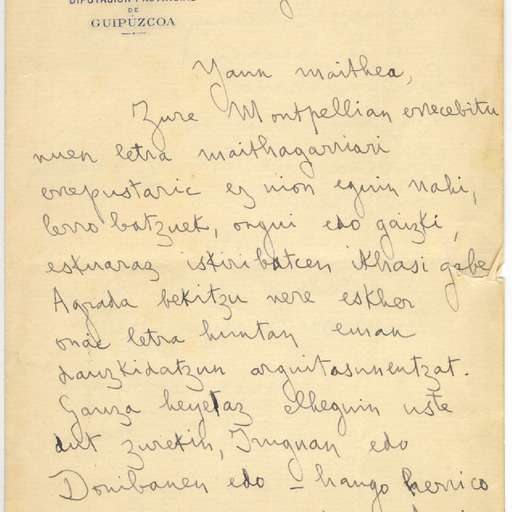 DIPUTACIÓN PROVINCIAL
DE
GUIPÚZCOA
Yaun maithea,
Zure Montpellian errecebitu
nuen letra maithagarriari
errepustaric ez nion eguin nahi,
lerro batzuek, ongui edo gaizki,
eskuaraz iskiribatcen ikhasi gabe
Agrada bekitzu nere eskher
onac letra huntan eman
dauzkidatzun arguitasunentzat.
Gauza heyetaz elheguin uste
dut zurekin, Irugnan edo
Donibanen edo – hango herrico